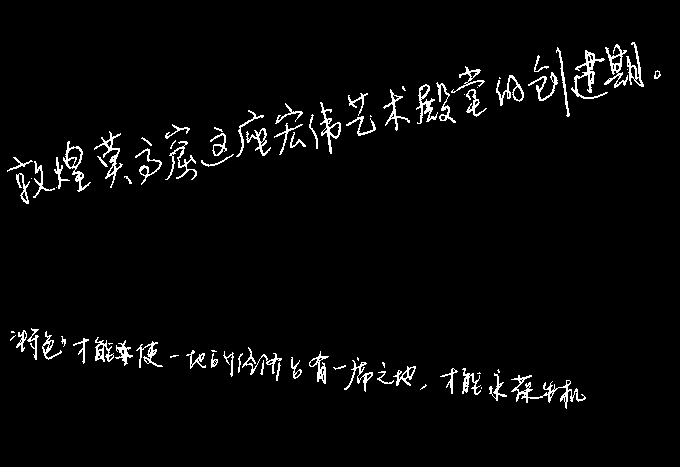 敦煌莫高窟这座宏伟艺术殿堂的创建期。
“特色”才能牵使一地的经济占有一席之地，才能永葆生机